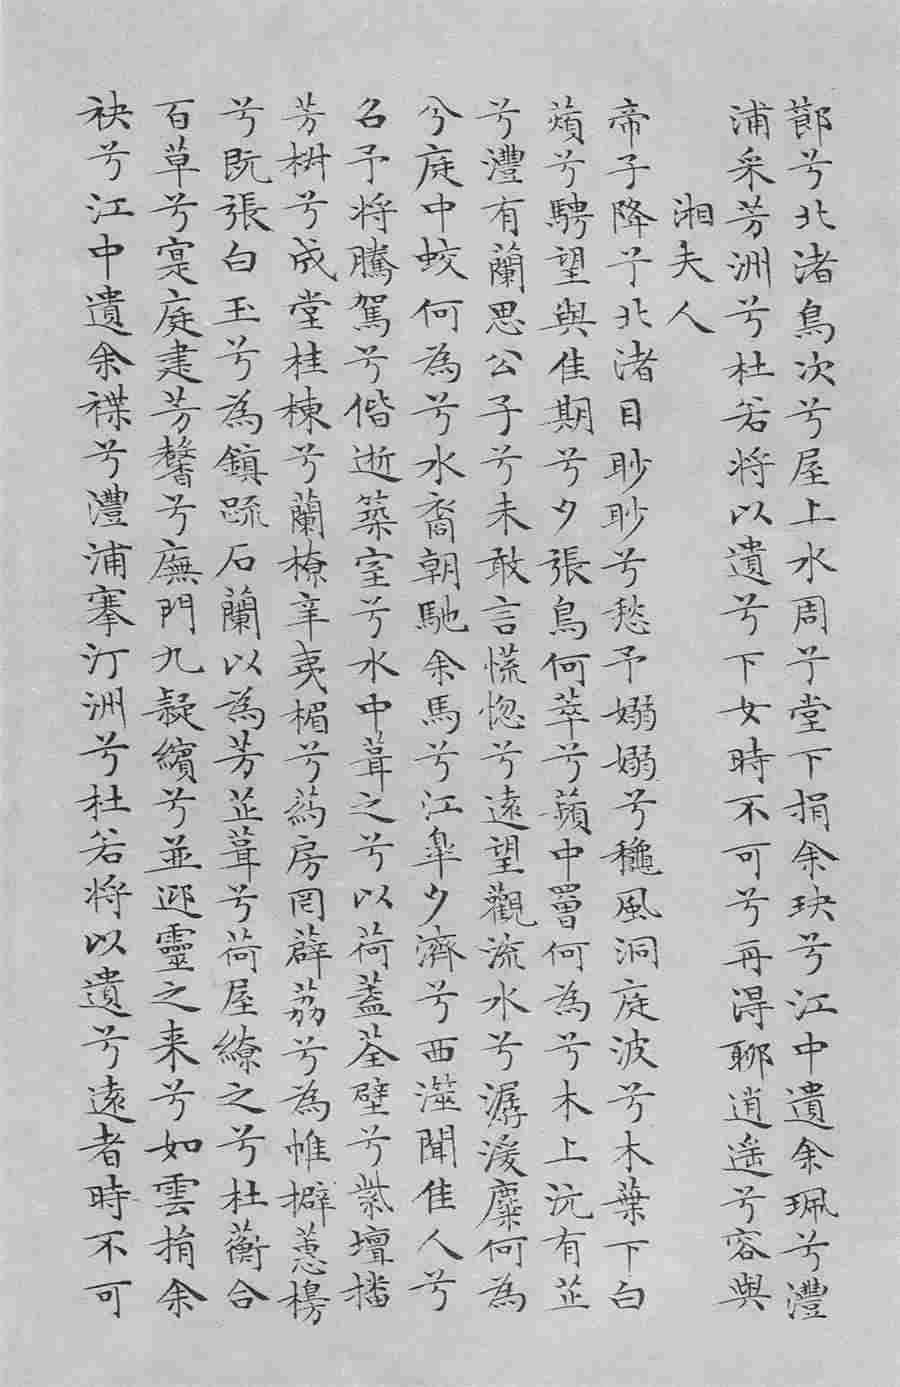 節兮北渚鳥次兮屋上水周兮堂下捐余玦兮江中遺余珮兮澧
浦采芳洲兮杜若將以遺兮下女時不可兮再得聊逍遥兮容與
湘夫人
帝子降兮北渚目眇眇兮愁予嫋嫋兮穐風洞庭波兮木葉下白
薠兮騁望與佳期兮夕張鳥何萃兮蘋中罾何為兮木上沅有芷
兮澧有蘭思公子兮未敢言慌惚兮遠望觀流水兮潺湲麋何為
兮庭中蛟何為兮水裔朝馳余馬兮江臯夕濟兮西澨聞佳人兮
召予将騰駕兮偕逝築室兮水中葺之兮以荷蓋荃壁兮紫壇播
芳椒兮成堂桂棟兮蘭橑辛夷楣兮葯房罔薜荔兮為帷擗蕙櫋
兮既張白玉兮為鎮疏石蘭以為芳芷葺兮荷屋繚之兮杜蘅合
百草兮寔庭建芳馨兮廡門九疑繽兮並迎靈之来兮如雲捐余
袂兮江中遺余褋兮澧浦搴汀洲兮杜若将以遺兮遠者時不可